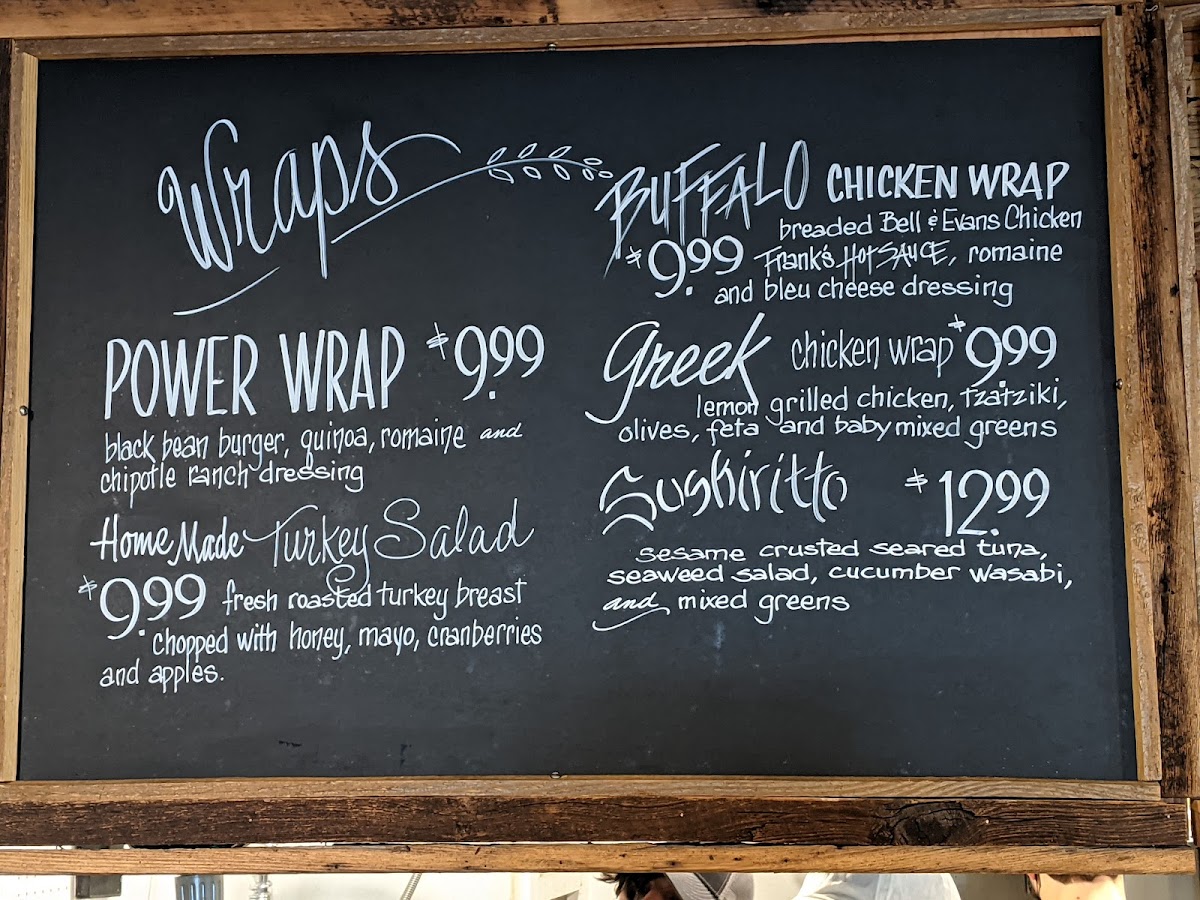 Wraps
POWER WRAP $9.99
black bean burger, quinoa, romaine and
chipotle ranch dressing
Home Made Turkey Salad
$9.99 fresh roasted turkey breast
chopped with honey, mayo, cranberries
and apples.
BUFFALO CHICKEN WRAP
breaded Bell & Evans Chicken
$9.99 Frank's Hot SAUCE, romaine
and bleu cheese dressing
Greek chicken wrap $9.99
lemon grilled chicken, tzatziki,
olives, feta and baby mixed greens
Sushiritto $12.99
sesame crusted seared tuna,
seaweed salad, cucumber wasabi,
and mixed greens